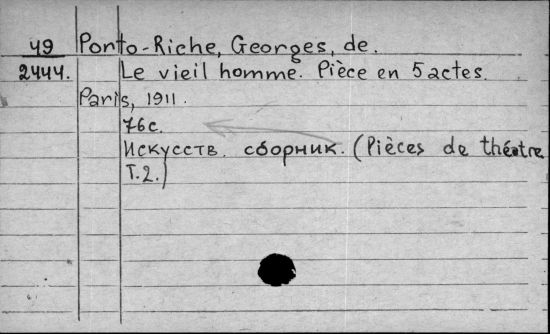 49 Porto-Riche, Georges, de.
2444. Le vieil homme. Pièce en 5 actes.
Paris, 1911.
76с.
Искусств. сборник. (Pièces de théatre
T.2.)